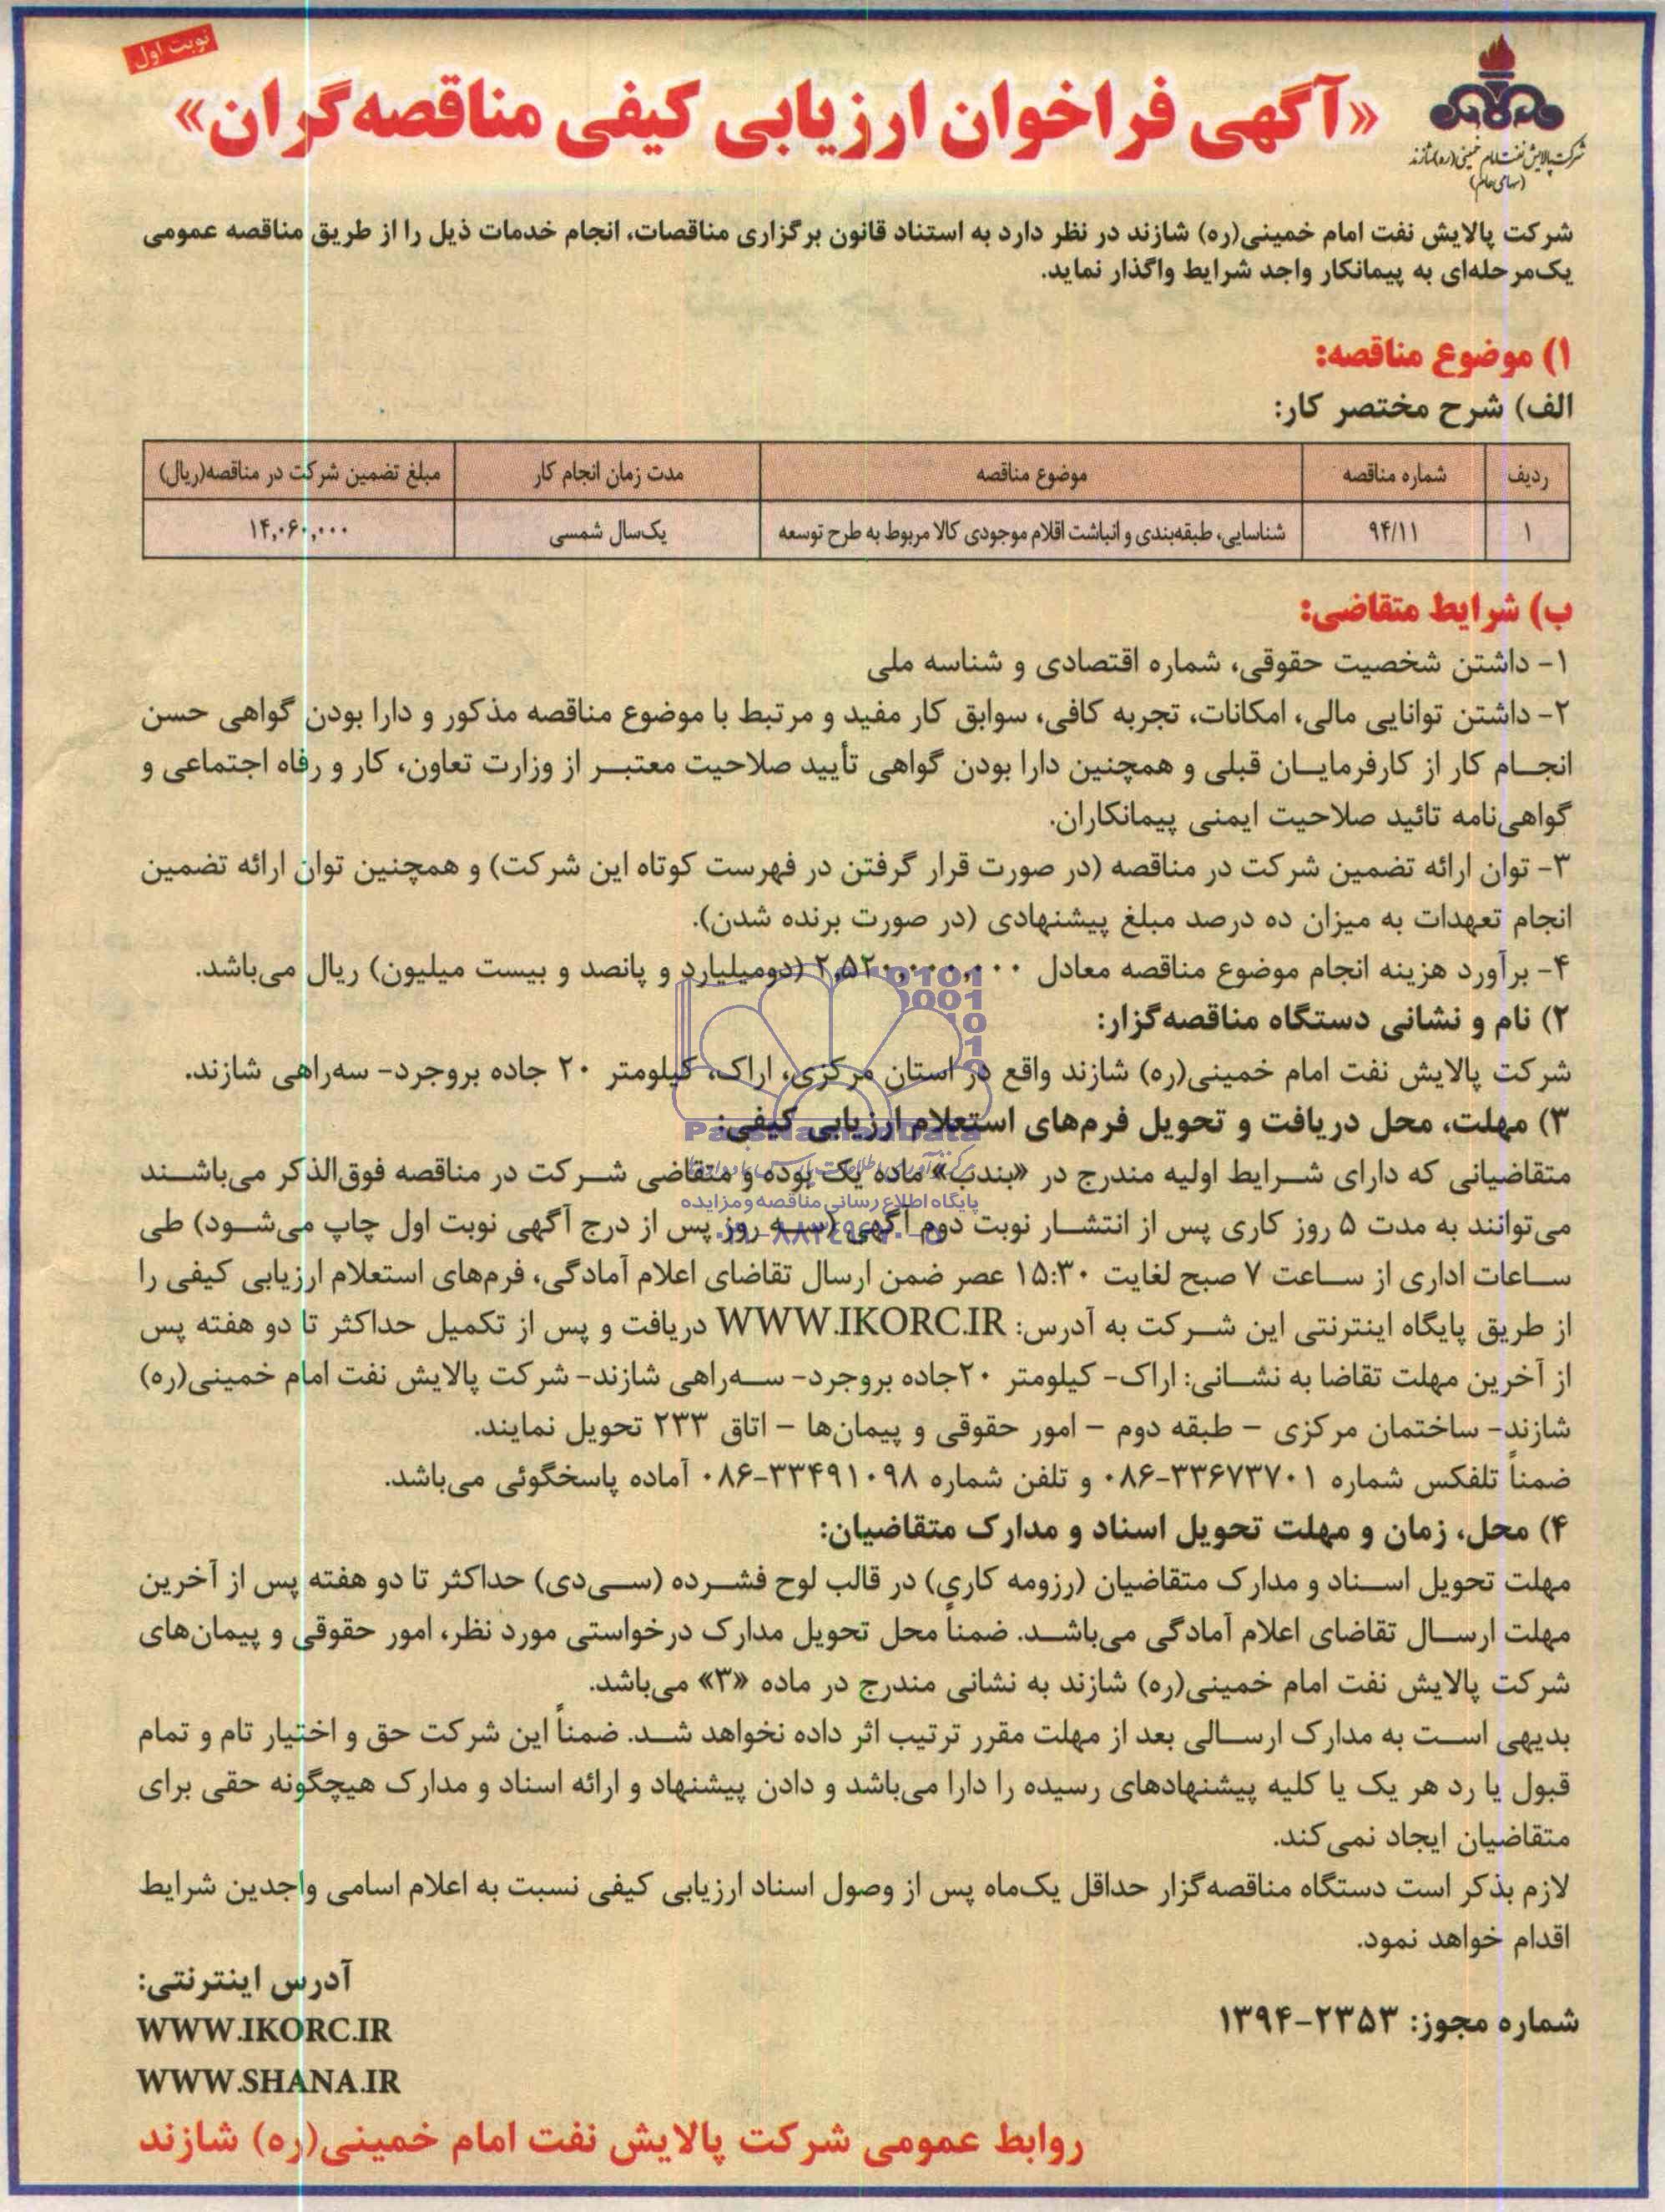 نوبت اول
«آگهی فراخوان ارزیابی کیفی مناقصه‌گران»
شرکت پالایش نفت امام خمینی(ره) شازند
(سهامی عام)
شرکت پالایش نفت امام خمینی(ره) شازند در نظر دارد به استناد قانون برگزاری مناقصات، انجام خدمات ذیل را از طریق مناقصه عمومی
یک‌مرحله‌ای به پیمانکار واجد شرایط واگذار نماید.
۱) موضوع مناقصه:
الف) شرح مختصر کار:
ردیف شماره مناقصه موضوع مناقصه مدت زمان انجام کار مبلغ تضمین شرکت در مناقصه(ریال)
۱ ۹۴/۱۱ شناسایی، طبقه‌بندی و انباشت اقلام موجودی کالا مربوط به طرح توسعه یک‌سال شمسی ۱۴,۰۶۰,۰۰۰
ب) شرایط متقاضی:
۱- داشتن شخصیت حقوقی، شماره اقتصادی و شناسه ملی
۲- داشتن توانایی مالی، امکانات، تجربه کافی، سوابق کار مفید و مرتبط با موضوع مناقصه مذکور و دارا بودن گواهی حسن
انجام کار از کارفرمایان قبلی و همچنین دارا بودن گواهی تأیید صلاحیت معتبر از وزارت تعاون، کار و رفاه اجتماعی و
گواهی‌نامه تائید صلاحیت ایمنی پیمانکاران.
۳- توان ارائه تضمین شرکت در مناقصه (در صورت قرار گرفتن در فهرست کوتاه این شرکت) و همچنین توان ارائه تضمین
انجام تعهدات به میزان ده درصد مبلغ پیشنهادی (در صورت برنده شدن).
۴- برآورد هزینه انجام موضوع مناقصه معادل ۲,۵۲۰,۰۰۰,۰۰۰ (دومیلیارد و پانصد و بیست میلیون) ریال می‌باشد.
۲) نام و نشانی دستگاه مناقصه‌گزار:
شرکت پالایش نفت امام خمینی(ره) شازند واقع در استان مرکزی، اراک، کیلومتر ۲۰ جاده بروجرد- سه‌راهی شازند.
۳) مهلت، محل دریافت و تحویل فرم‌های استعلام ارزیابی کیفی:
متقاضیانی که دارای شرایط اولیه مندرج در «بندب» ماده یک بوده و متقاضی شرکت در مناقصه فوق‌الذکر می‌باشند
پایگاه اطلاع رسانی مناقصه و مزایده
می‌توانند به مدت ۵ روز کاری پس از انتشار نوبت دوم آگهی (سه روز پس از درج آگهی نوبت اول چاپ می‌شود) طی
ساعات اداری از ساعت ۷ صبح لغایت ۱۵:۳۰ عصر ضمن ارسال تقاضای اعلام آمادگی، فرم‌های استعلام ارزیابی کیفی را
از طریق پایگاه اینترنتی این شرکت به آدرس: WWW.IKORC.IR دریافت و پس از تکمیل حداکثر تا دو هفته پس
از آخرین مهلت تقاضا به نشانی: اراک- کیلومتر ۲۰جاده بروجرد- سه‌راهی شازند- شرکت پالایش نفت امام خمینی(ره)
شازند- ساختمان مرکزی - طبقه دوم - امور حقوقی و پیمان‌ها - اتاق ۲۳۳ تحویل نمایند.
ضمناً تلفکس شماره ۳۳۶۷۳۷۰۱-۰۸۶ و تلفن شماره ۳۳۴۹۱۰۹۸-۰۸۶ آماده پاسخگوئی می‌باشد.
۴) محل، زمان و مهلت تحویل اسناد و مدارک متقاضیان:
مهلت تحویل اسناد و مدارک متقاضیان (رزومه کاری) در قالب لوح فشرده (سی‌دی) حداکثر تا دو هفته پس از آخرین
مهلت ارسال تقاضای اعلام آمادگی می‌باشد. ضمناً محل تحویل مدارک درخواستی مورد نظر، امور حقوقی و پیمان‌های
شرکت پالایش نفت امام خمینی(ره) شازند به نشانی مندرج در ماده «۳» می‌باشد.
بدیهی است به مدارک ارسالی بعد از مهلت مقرر ترتیب اثر داده نخواهد شد. ضمناً این شرکت حق و اختیار تام و تمام
قبول یا رد هر یک یا کلیه پیشنهادهای رسیده را دارا می‌باشد و دادن پیشنهاد و ارائه اسناد و مدارک هیچگونه حقی برای
متقاضیان ایجاد نمی‌کند.
لازم بذکر است دستگاه مناقصه‌گزار حداقل یک‌ماه پس از وصول اسناد ارزیابی کیفی نسبت به اعلام اسامی واجدین شرایط
اقدام خواهد نمود.
شماره مجوز: ۲۳۵۳-۱۳۹۴
آدرس اینترنتی:
WWW.IKORC.IR
WWW.SHANA.IR
روابط عمومی شرکت پالایش نفت امام خمینی(ره) شازند